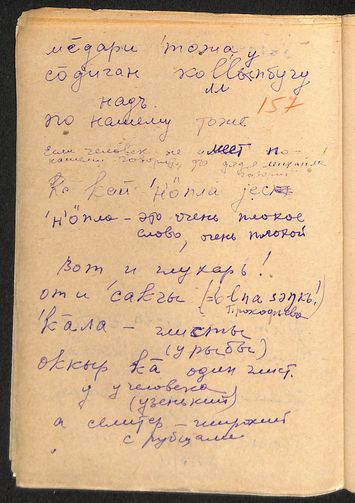 мēдари тожа, у
сōдиган ко
надъ. 157
по нашему тоже
если человек не умеет по-
нашему говорить, то дядя михайла
Ка кай 'н'ӧпла jес
'н'ӧпла – это очень плохое
слово, очень плохой
Вот и глухарь!
от и 'сакчы
Прокофьева
'кāла – чисты
(у рыбы)
оккыр кā один глист.
у человека
(узенький)
а селитер – широкий
с рубцами